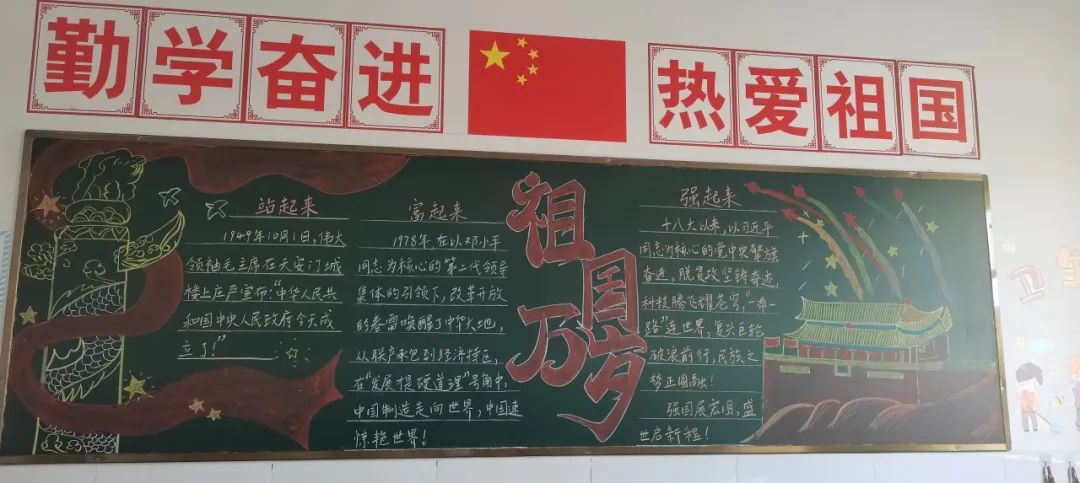 勤学奋进
热爱祖国
站起来
1949年10月1日,伟大
领袖毛主席在天安门城
楼上庄严宣布:“中华人民共
和国中央人民政府今天成
立了!”
富起来
1978年,在以邓小平
同志为核心的第二代领导
集体的引领下,改革开放
的春雷唤醒了中华大地,
从联产承包到经济特区,
在“发展才是硬道理”号角中,
中国制造走向世界,中国速
惊艳世界!
祖国万岁
强起来
十八大以来,以习近平
同志为核心的党中央繁族
奋进,脱贫攻坚铸奇迹,
科技腾飞耀苍穹,“一带一
路”连世界,复兴巨轮
破浪前行,民族之
梦正圆融!
强国展宏图,盛
世启新程!